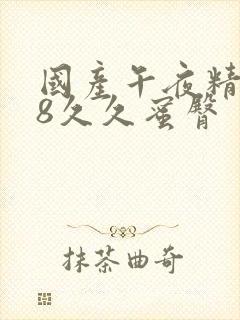 國產午夜精
8久久蜜臀
抹茶曲奇